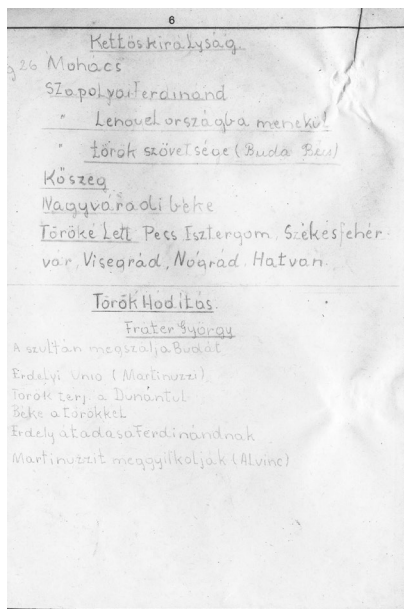 6
Kettőskirályság
g 26 Mohács
Szapolyai Ferdinánd
" Lengyelországba menekül
" török szövetsége (Buda Bécs)
Kőszeg
Nagyváradi béke
Töröké Lett Pécs, Esztergom, Székesfehér-
vár, Visegrád, Nógrád, Hatvan.
Török Hódítás.
Fráter György
A szultán megszálja Budát
Erdélyi Unió (Martinuzzi)
Török terj. a Dunántúl
Béke a törökkel
Erdély átadása Ferdinándnak
Martinuzzit meggyilkolják (Alvinc)